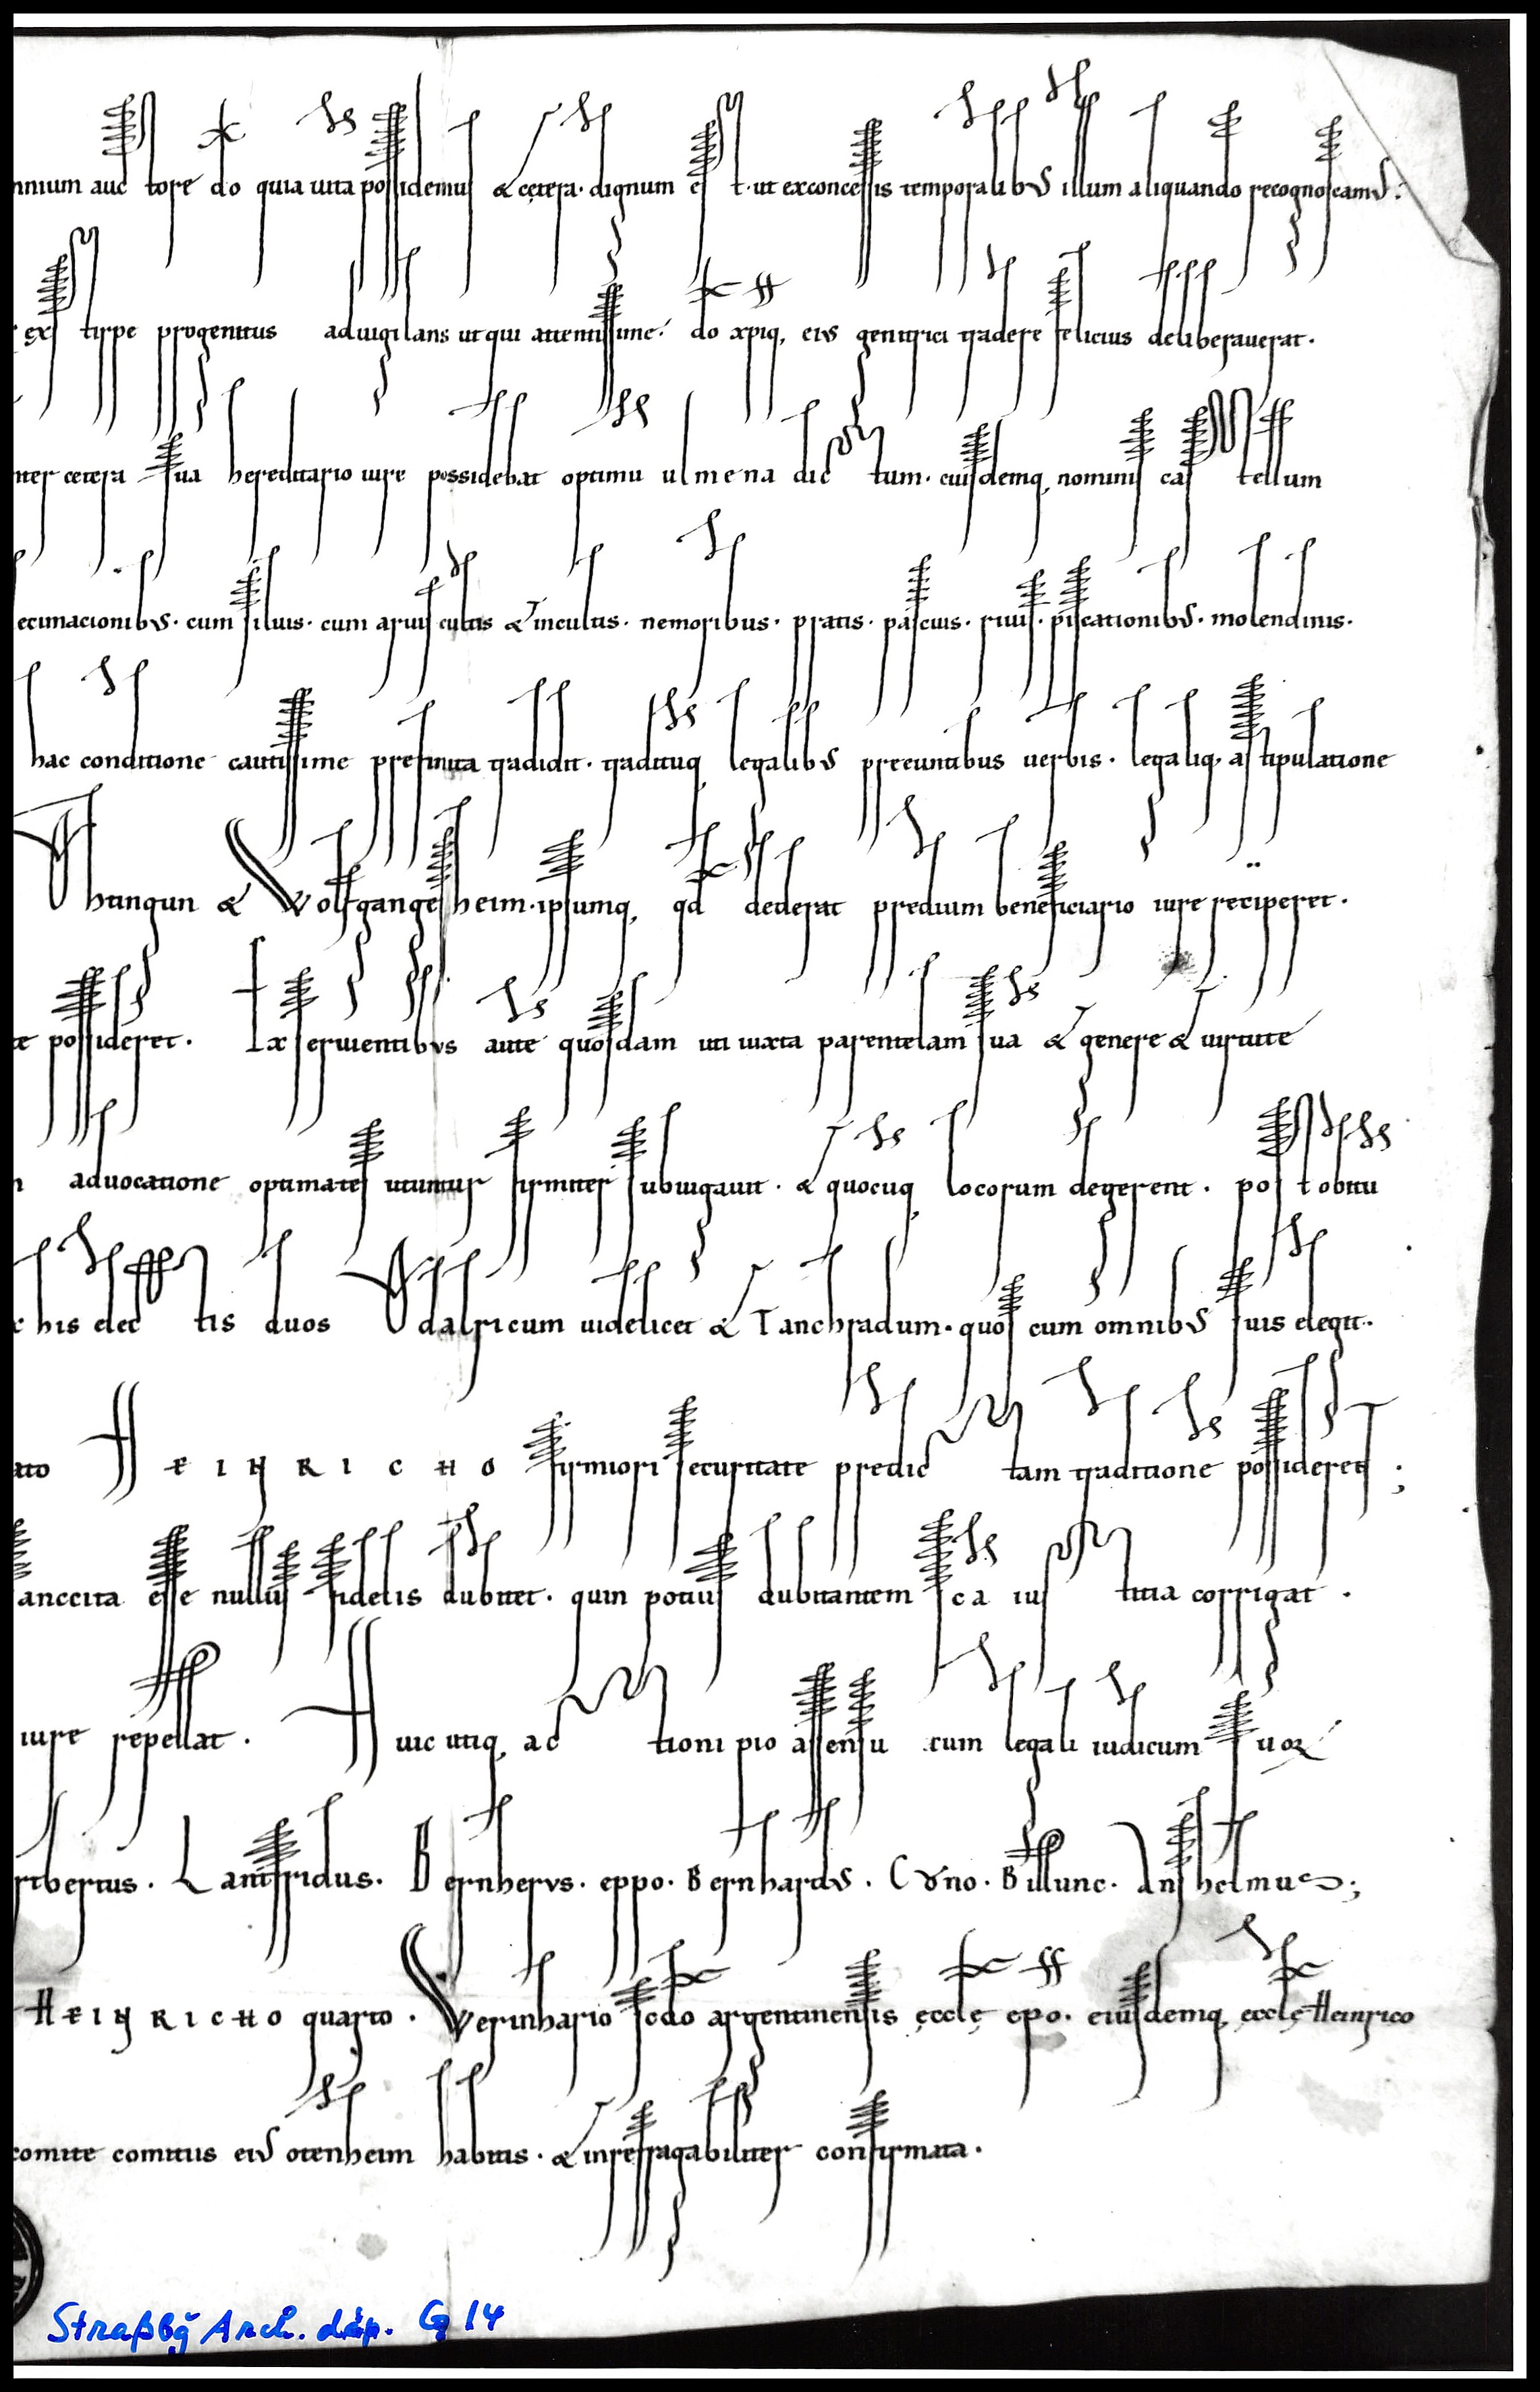 mnium auctore do quia uita possidemus & cetera. dignum est. ut exconcessis temporalibus illum aliquando recognoscamus.
ex stirpe progenitus aduigilans utqui attentissime. do xpiq, eius genitrici tradere felicius deliberauerat.
nter cetera sua hereditario iure possidebat optimu ulmena dictum. eiusdemq, nominis castellum
ecimacionibus. cum siluis. cum aruis cultis & incultis. nemoribus. pratis. pascuis. riuis. piscationibus. molendinis.
hac conditione cautissime prefinita tradidit. traditūq legalibus preeuntibus uerbis. legaliq, astipulatione
Thungun & Wolfgangesheim. ipsumq, qd dederat predium beneficiario iure reciperet.
te possideret. Ex seruientibus aute quosdam uti iuxta parentelam sua & genere & uirtute
aduocatione optimates utuntur firmiter subiugauit. & quocuq, locorum degerent. post obitu
c his electis duos Vdalricum uidelicet & Tanchradum. quos cum omnibus suis elegit.
ato HEINRICHO firmiori securitate predictam traditione possideret;
anccita esse nullus fidelis dubitet. quin potius dubitantem sca iustitia corrigat.
iure repellat. Huic utiq, actioni pio assensu cum legali iudicum suoꝝ
ribertus. Lantfridus. Bernherus. eppo. Bernhardus. Cuno. Billunc. Anshelmus;
HEINRICHO quarto. Werinhario scdo argentinensis eccle epo. eiusdemq, eccle Heinrico
comite comitus eius otenheim habitis. & inrefragabiliter confirmata.
Straßbg Arch. dép. G 14